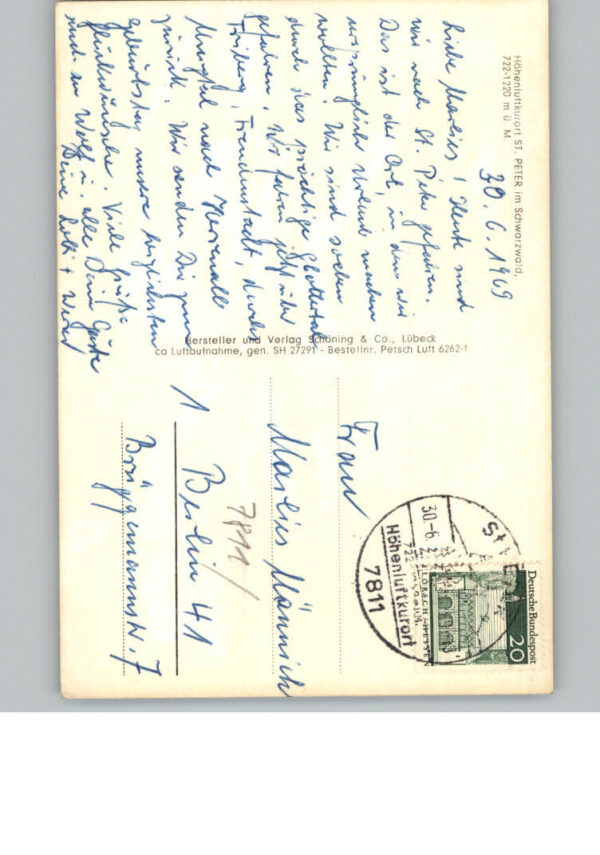 Höhenluftkurort ST. PETER im Schwarzwald,
722-1220 m ü. M.
30. 6. 1969
Liebe Marlies! Heute sind
wir nach St. Peter gefahren.
Das ist der Ort, in dem wir
ursprünglich Urlaub machen
wollten. Wir sind soeben
durch das prächtige Glottertal
gefahren. Wir fahren jetzt über
Freiburg, Freudenstadt, durchs
Murgtal nach Herrenalb
zurück. Wir senden Dir zum
Geburtstag unsere herzlichsten
Glückwünsche. Viele Grüße
auch an Wolf u. alle Deine Gäste
Deine
Hersteller und Verlag Schöning & Co., Lübeck
ca Luftaufnahme, gen. SH 27291 - Bestellnr. Petsch Luft 6262-I
Frau
Marlies Männich
1 Berlin 41
7811/
Brüggemannstr. 7
St. PE
30.-6.
722
Höhenluftkurort
7811
Deutsche Bundespost
20
LORSCH/HESSEN